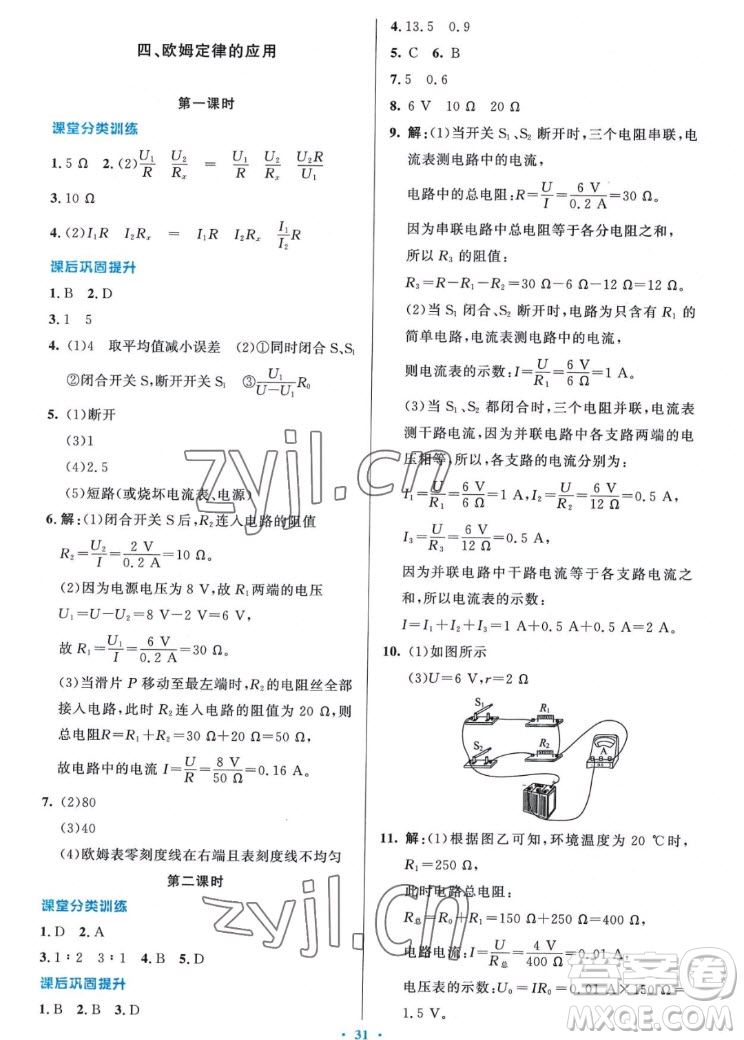 四、欧姆定律的应用
第一课时
课堂分类训练
1. 5 Ω  2. (2) U₁/R  U₂/Rₓ  =  U₁/R  U₂/Rₓ  U₂R/U₁
3. 10 Ω
4. (2) I₁R  I₂Rₓ  =  I₁R  I₂Rₓ  I₁/I₂ R
课后巩固提升
1. B  2. D
3. 1  5
4. (1)4  取平均值减小误差  (2)①同时闭合 S、S₁
②闭合开关 S,断开开关 S₁  ③ U₁/(U－U₁) R₀
5. (1)断开
(3)1
(4)2.5
(5)短路(或烧坏电流表、电源)
6. 解:(1)闭合开关 S 后,R₂ 连入电路的阻值
R₂＝U₂/I＝2 V/0.2 A＝10 Ω。
(2)因为电源电压为 8 V,故 R₁ 两端的电压
U₁＝U－U₂＝8 V－2 V＝6 V,
故 R₁＝U₁/I＝6 V/0.2 A＝30 Ω。
(3)当滑片 P 移动至最左端时,R₂ 的电阻丝全部
接入电路,此时 R₂ 连入电路的阻值为 20 Ω,则
总电阻 R＝R₁＋R₂＝30 Ω＋20 Ω＝50 Ω,
故电路中的电流 I＝U/R＝8 V/50 Ω＝0.16 A。
7. (2)80
(3)40
(4)欧姆表零刻度线在右端且表刻度线不均匀
第二课时
课堂分类训练
1. D  2. A
3. 1∶2  3∶1  4. B  5. D
课后巩固提升
1. B  2. B  3. D
4. 13.5  0.9
5. C  6. B
7. 5  0.6
8. 6 V  10 Ω  20 Ω
9. 解:(1)当开关 S₁、S₂ 断开时,三个电阻串联,电
流表测电路中的电流,
电路中的总电阻:R＝U/I＝6 V/0.2 A＝30 Ω,
因为串联电路中总电阻等于各分电阻之和,
所以 R₃ 的阻值:
R₃＝R－R₁－R₂＝30 Ω－6 Ω－12 Ω＝12 Ω。
(2)当 S₁ 闭合、S₂ 断开时,电路为只含有 R₁ 的
简单电路,电流表测电路中的电流,
则电流表的示数:I＝U/R₁＝6 V/6 Ω＝1 A。
(3)当 S₁、S₂ 都闭合时,三个电阻并联,电流表
测干路电流,因为并联电路中各支路两端的电
压相等,所以,各支路的电流分别为:
I₁＝U/R₁＝6 V/6 Ω＝1 A,I₂＝U/R₂＝6 V/12 Ω＝0.5 A,
I₃＝U/R₃＝6 V/12 Ω＝0.5 A,
因为并联电路中干路电流等于各支路电流之
和,所以电流表的示数:
I＝I₁＋I₂＋I₃＝1 A＋0.5 A＋0.5 A＝2 A。
10. (1)如图所示
(3)U＝6 V,r＝2 Ω
S₁ R₁
S₂ R₂ A
11. 解:(1)根据图乙可知,环境温度为 20 ℃时,
R₁＝250 Ω,
此时电路总电阻:
R总＝R₀＋R₁＝150 Ω＋250 Ω＝400 Ω,
电路电流:I＝U/R总＝4 V/400 Ω＝0.01 A,
电压表的示数:U₀＝IR₀＝0.01 A×150 Ω＝
1.5 V。
· 31 ·
zyjl.cn
zyjl.cn
答案圈
MXQE.COM